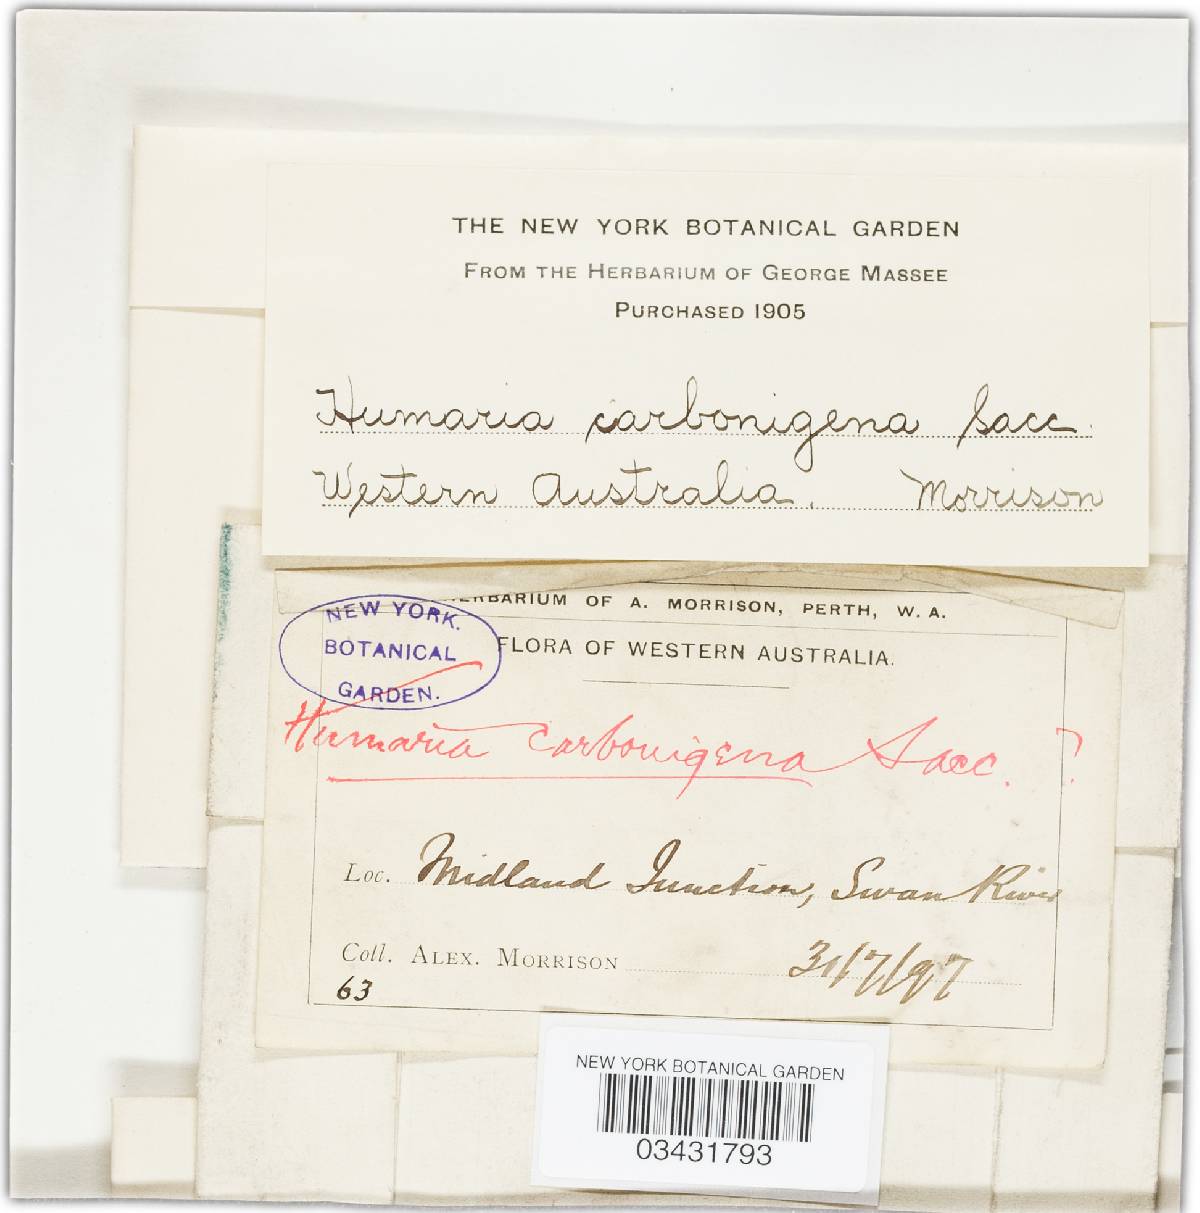 THE NEW YORK BOTANICAL GARDEN
FROM THE HERBARIUM OF GEORGE MASSEE
PURCHASED 1905
Humaria carbonigena Sacc.
Western Australia. Morrison
HERBARIUM OF A. MORRISON, PERTH, W. A.
FLORA OF WESTERN AUSTRALIA.
NEW YORK.
BOTANICAL
GARDEN.
Humaria carbonigena Sacc. ?
Loc. Midland Junction, Swan River
Coll. ALEX. MORRISON 31/7/97
63
NEW YORK BOTANICAL GARDEN
03431793